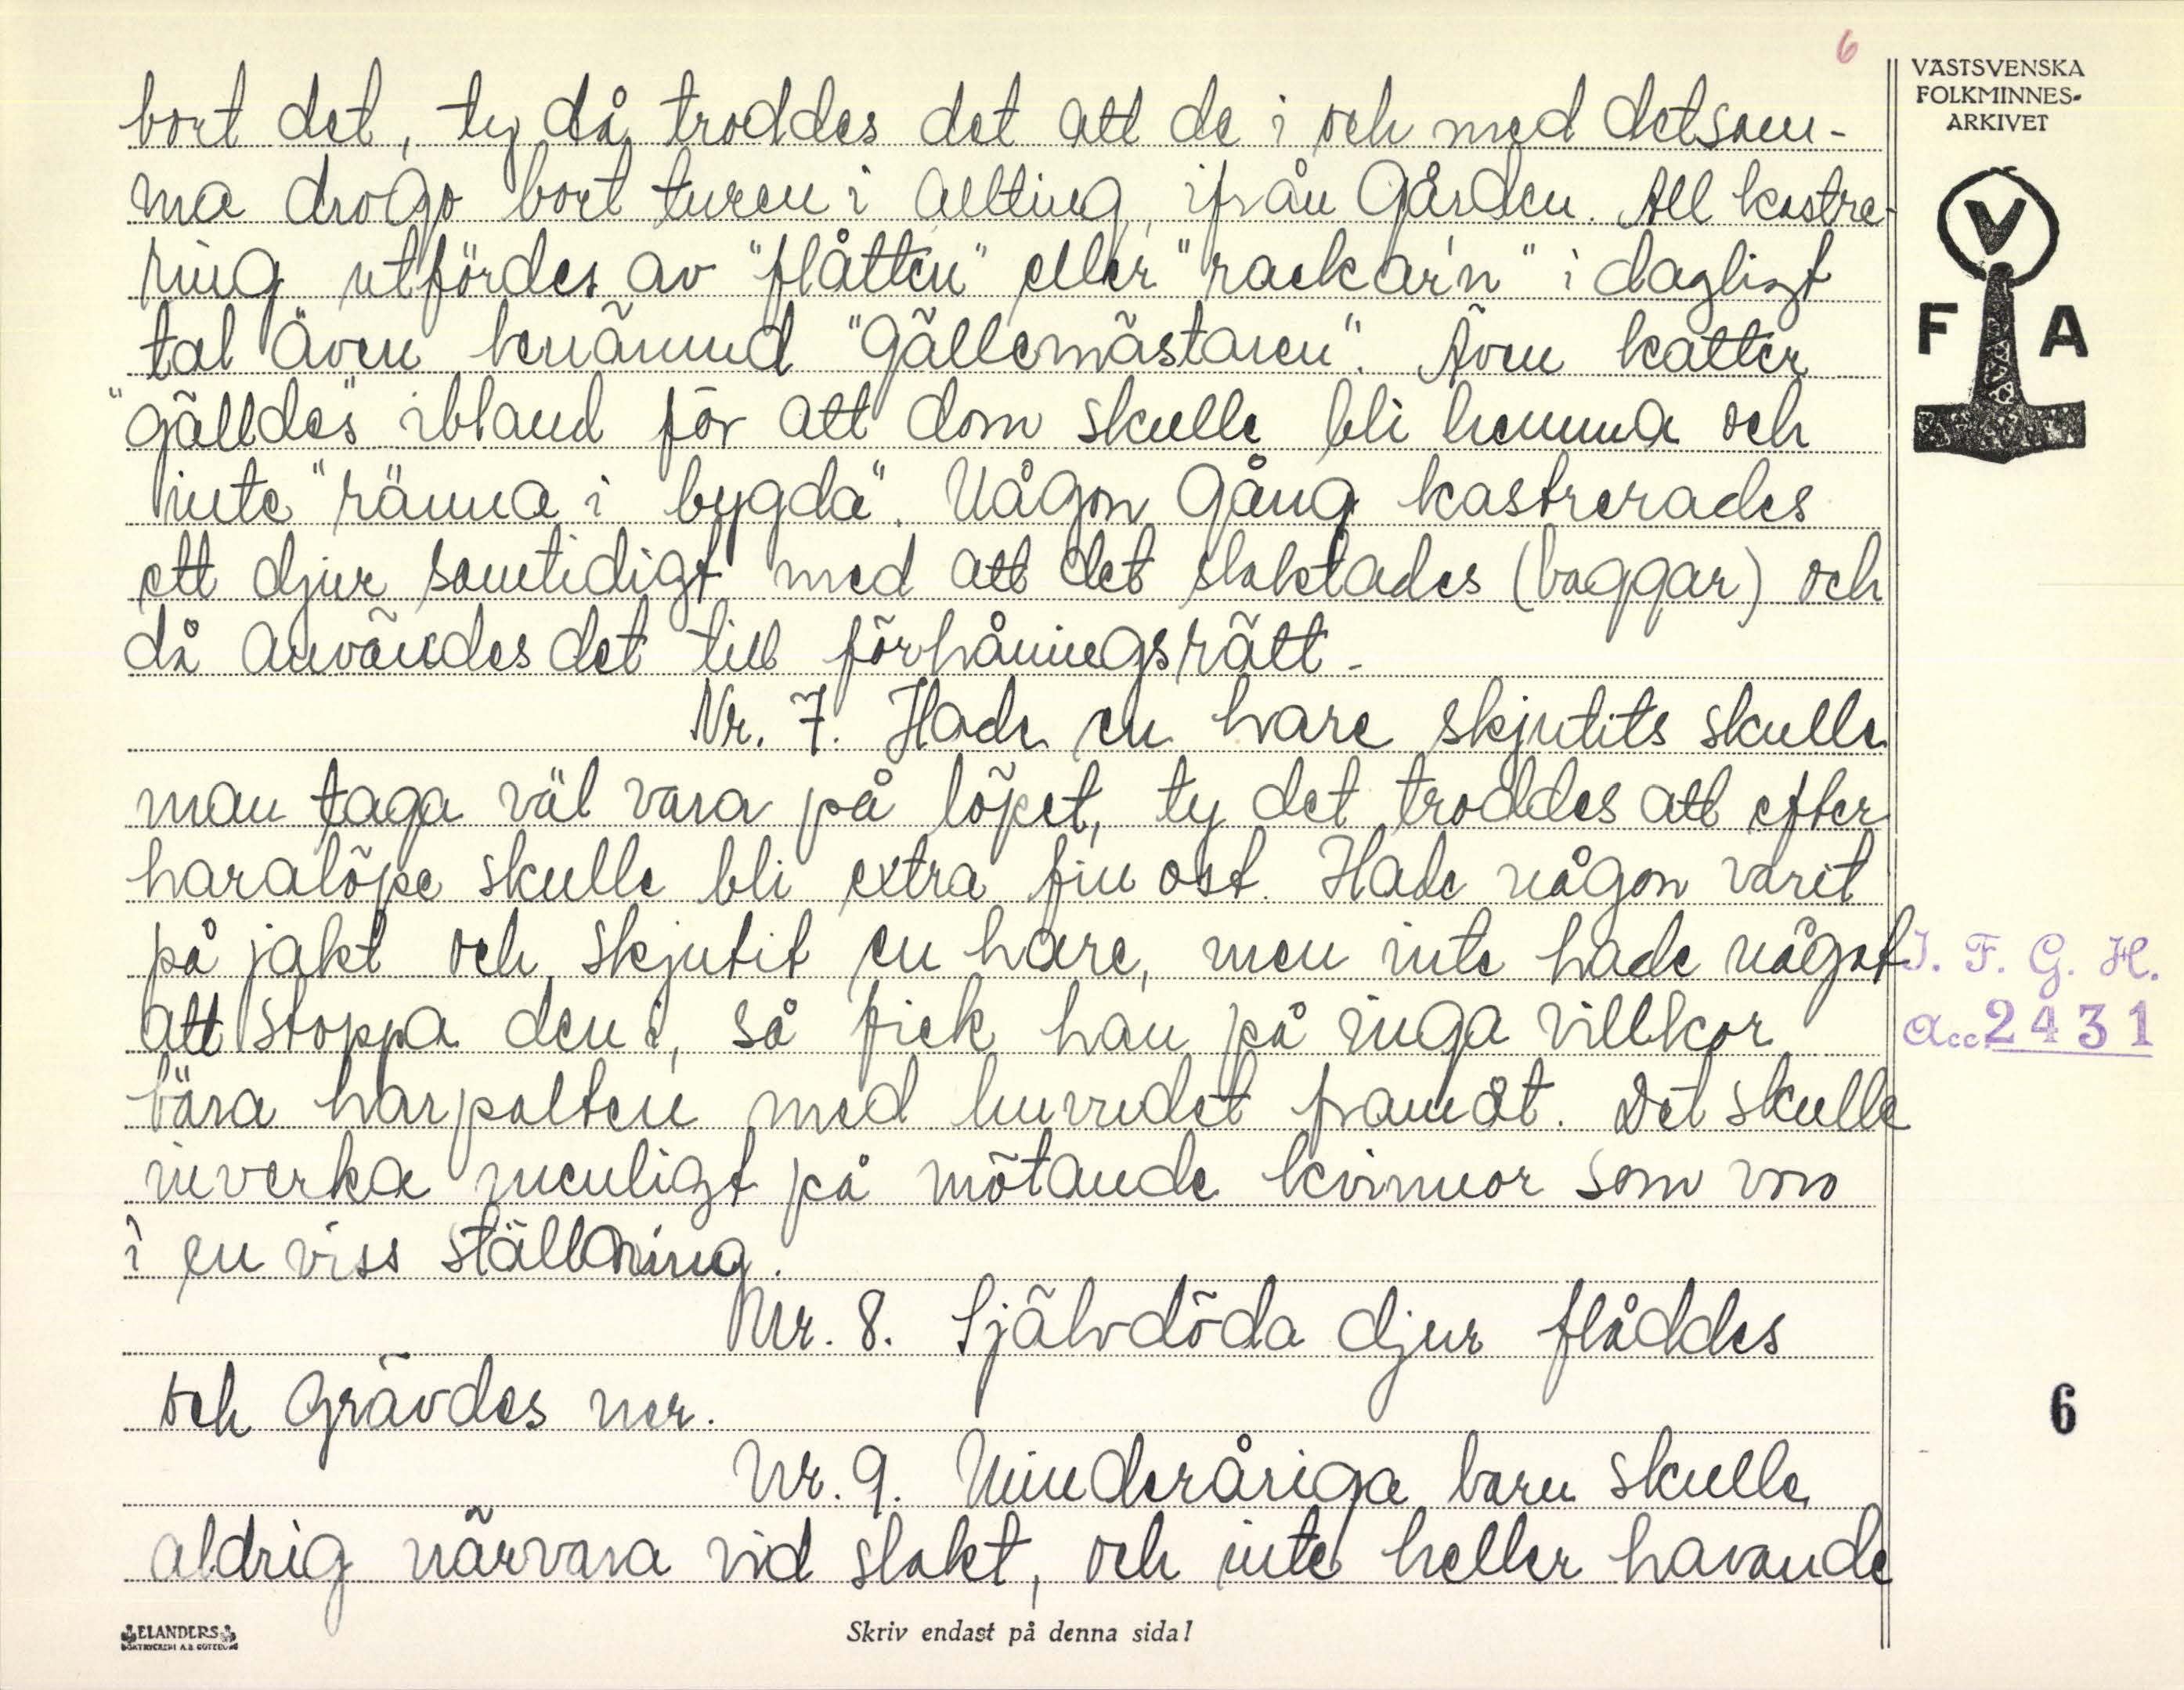 6
bort det, ty då troddes det att de i och med detsam-
ma drogo bort turen i allting, ifrån gården. All kastre-
ring utfördes av "flåtten" eller "rackar'n" i dagligt
tal även benämnd "gällemästaren". Även katter
"gälldes" ibland för att dom skulle bli hemma och
inte "ränna i bygda". Någon gång kastrerades
ett djur samtidigt med att det slaktades (baggar) och
då användes det till förhåningsrätt.
Nr. 7. Hade en hare skjutits skulle
man taga väl vara på löpet, ty det troddes att efter
haralöpe skulle bli extra fin ost. Hade någon varit
på jakt och skjutit en hare, men inte hade något
att stoppa den i, så fick han på inga villkor
bära harpalten med huvudet framåt. Det skulle
inverka menligt på mötande kvinnor som voro
i en viss ställning.
Nr. 8. Självdöda djur flåddes
och grävdes ner.
Nr. 9. Minderåriga barn skulle
aldrig närvara vid slakt, och inte heller havande
VÄSTSVENSKA
FOLKMINNES-
ARKIVET
V
F A
I. F. G. H.
Acc. 2431
6
ELANDERS
BOKTRYCKERI A.B. GÖTEBORG
Skriv endast på denna sida!